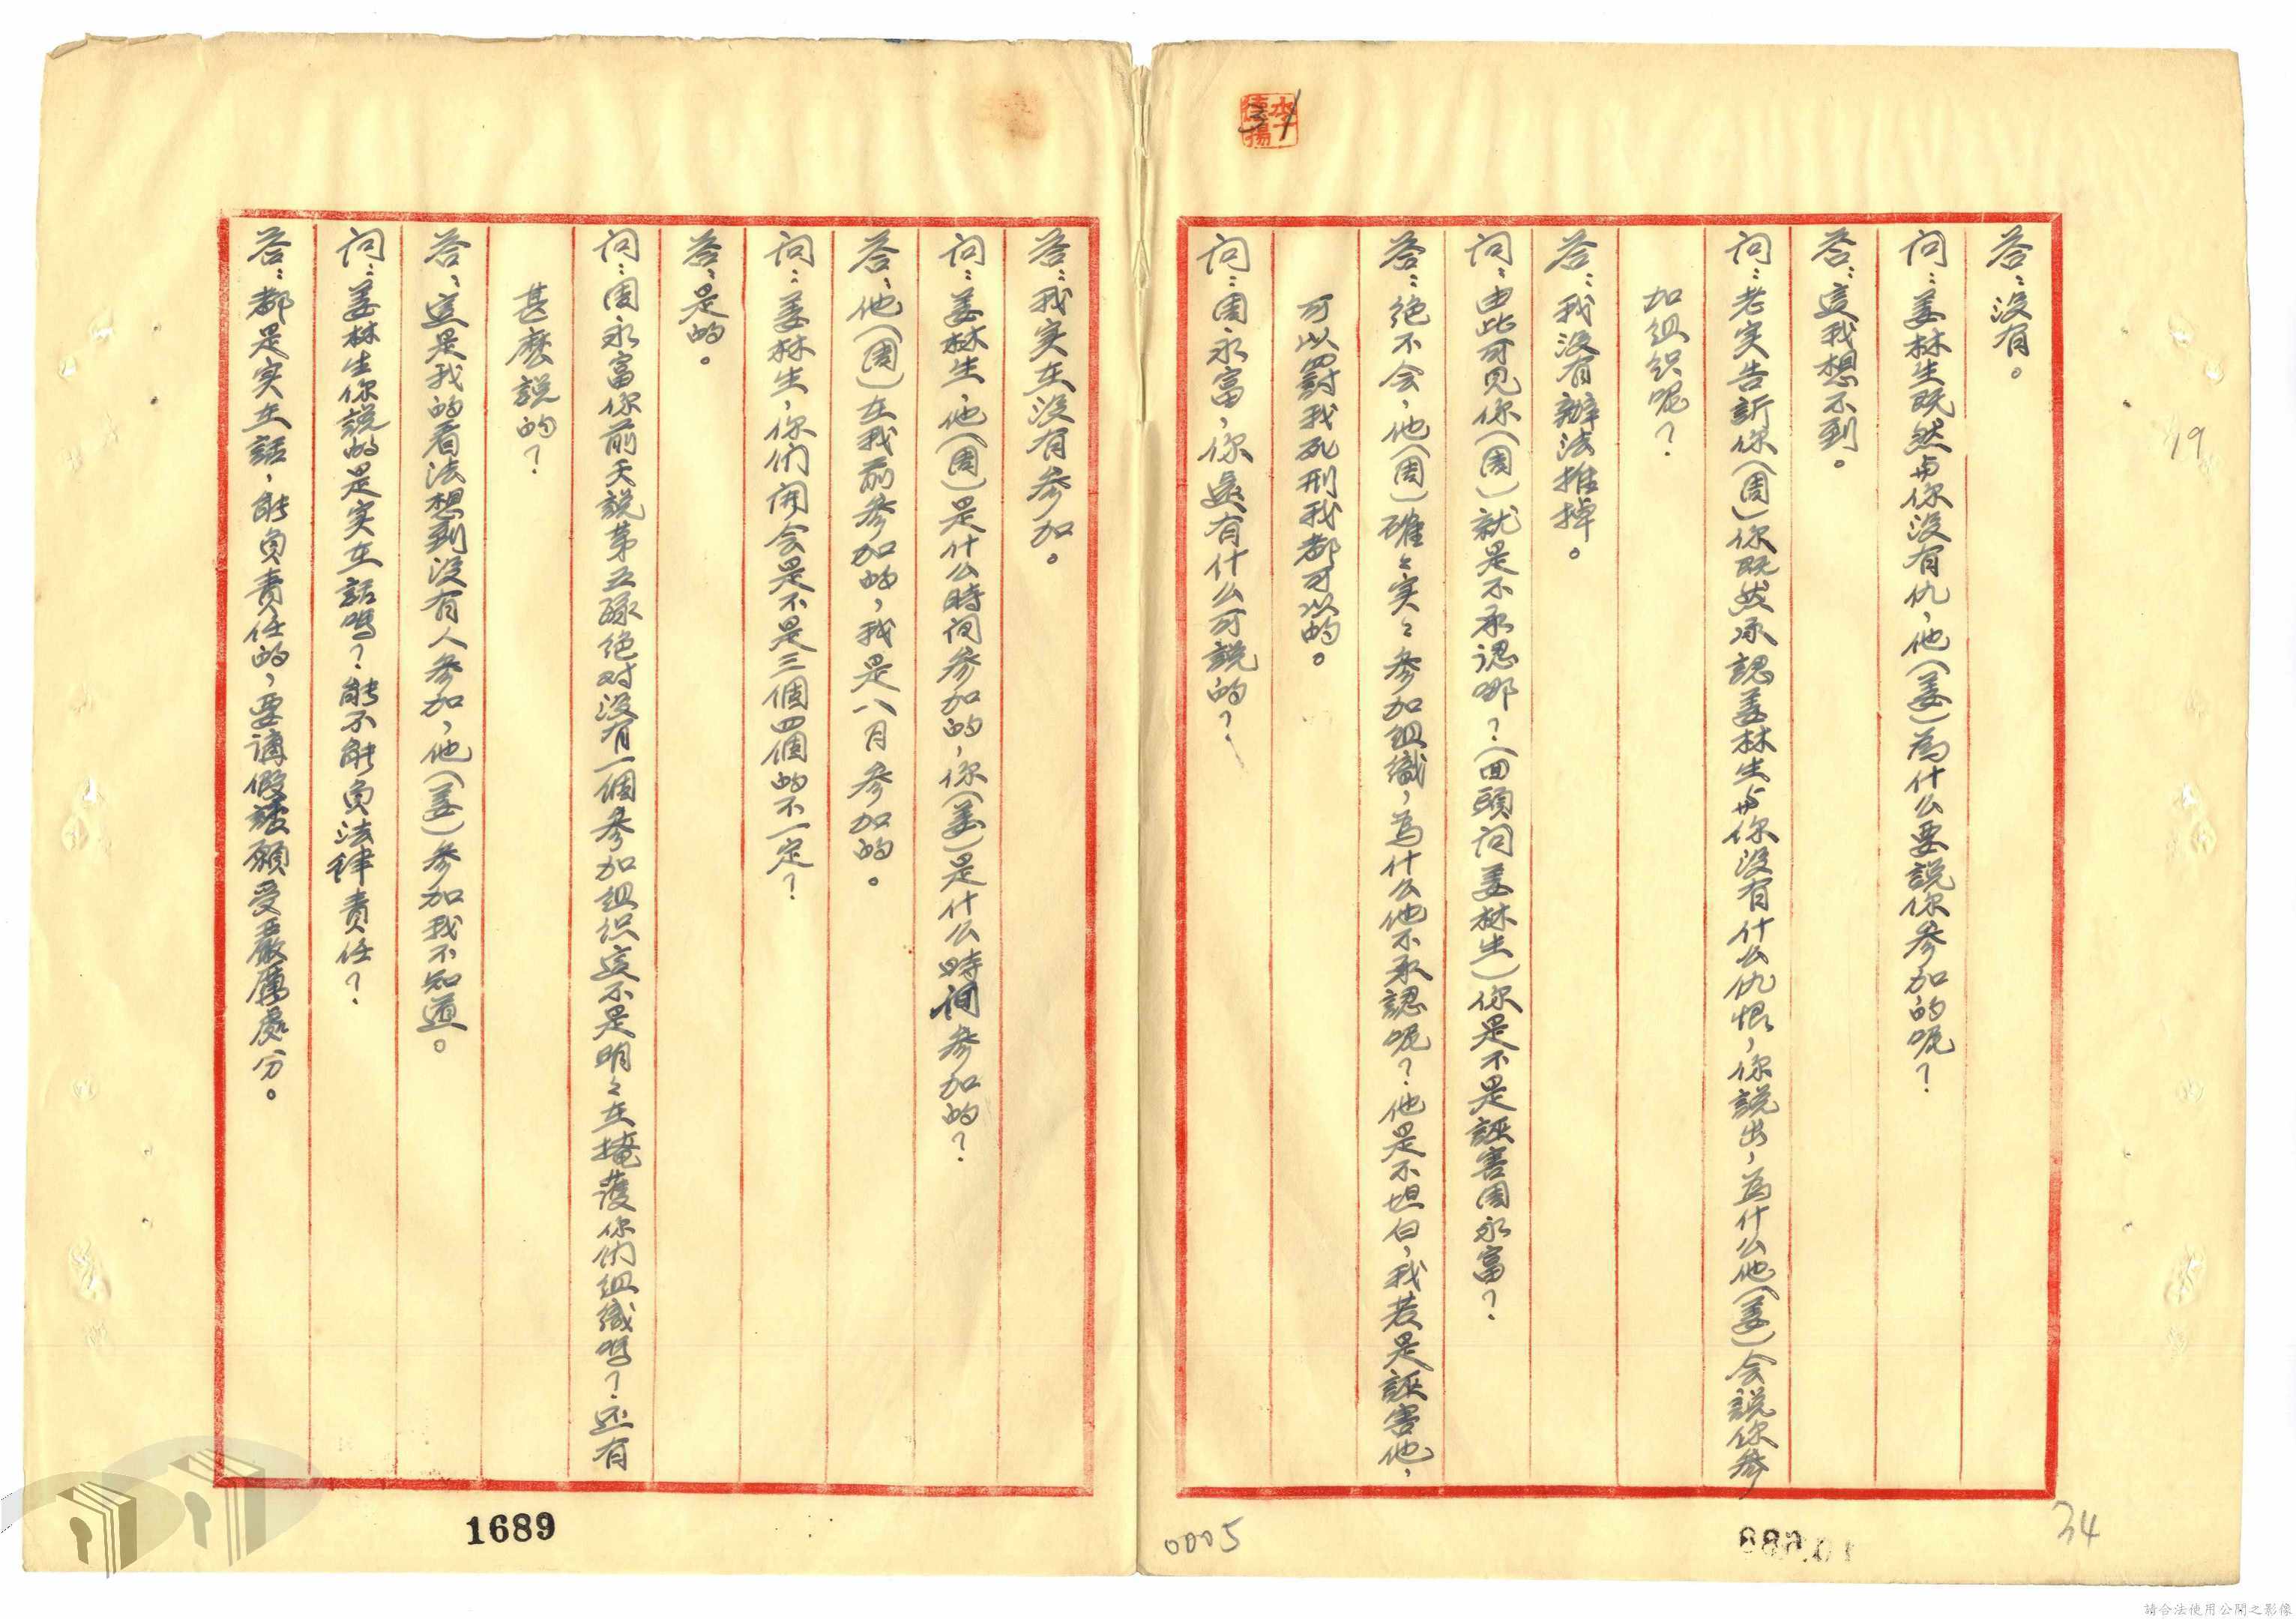 答：没有。
问：姜林生既然与你没有仇，他（姜）為什么要説你参加的呢？
答：這我想不到。
问：老实告訴你（周）你既然承認姜林生与你没有什么仇恨，你説出，為什么他（姜）会説你参
加组织呢？
答：我没有辦法推掉。
问：由此可见你（周）就是不承認哪？（回頭问姜林生）你是不是誣害周永富？
答：绝不会，他（周）確々实々参加组織，為什么他不承認呢？他是不坦白，我若是誣害他，
可以罰我死刑我都可以的。
问：周永富，你還有什么可説的？
答：我实在没有参加。
问：姜林生，他（周）是什么時间参加的，你（姜）是什么時间参加的？
答：他（周）在我前参加的，我是八月参加的。
问：姜林生，你们開会是不是三個四個的不一定？
答：是的。
问：周永富你前天説第五隊绝对没有一個参加组织這不是明々在掩護你们组織嗎？还有
甚麽説的？
答：這是我的看法想到没有人参加，他（姜）参加我不知道。
问：姜林生你説的是实在話嗎？能不能負法律責任？
答：都是实在話，能負責任的，要講假話願受嚴厲處分。
李德揚
31
19
34
0005
1688
1689
請合法使用公開之影像